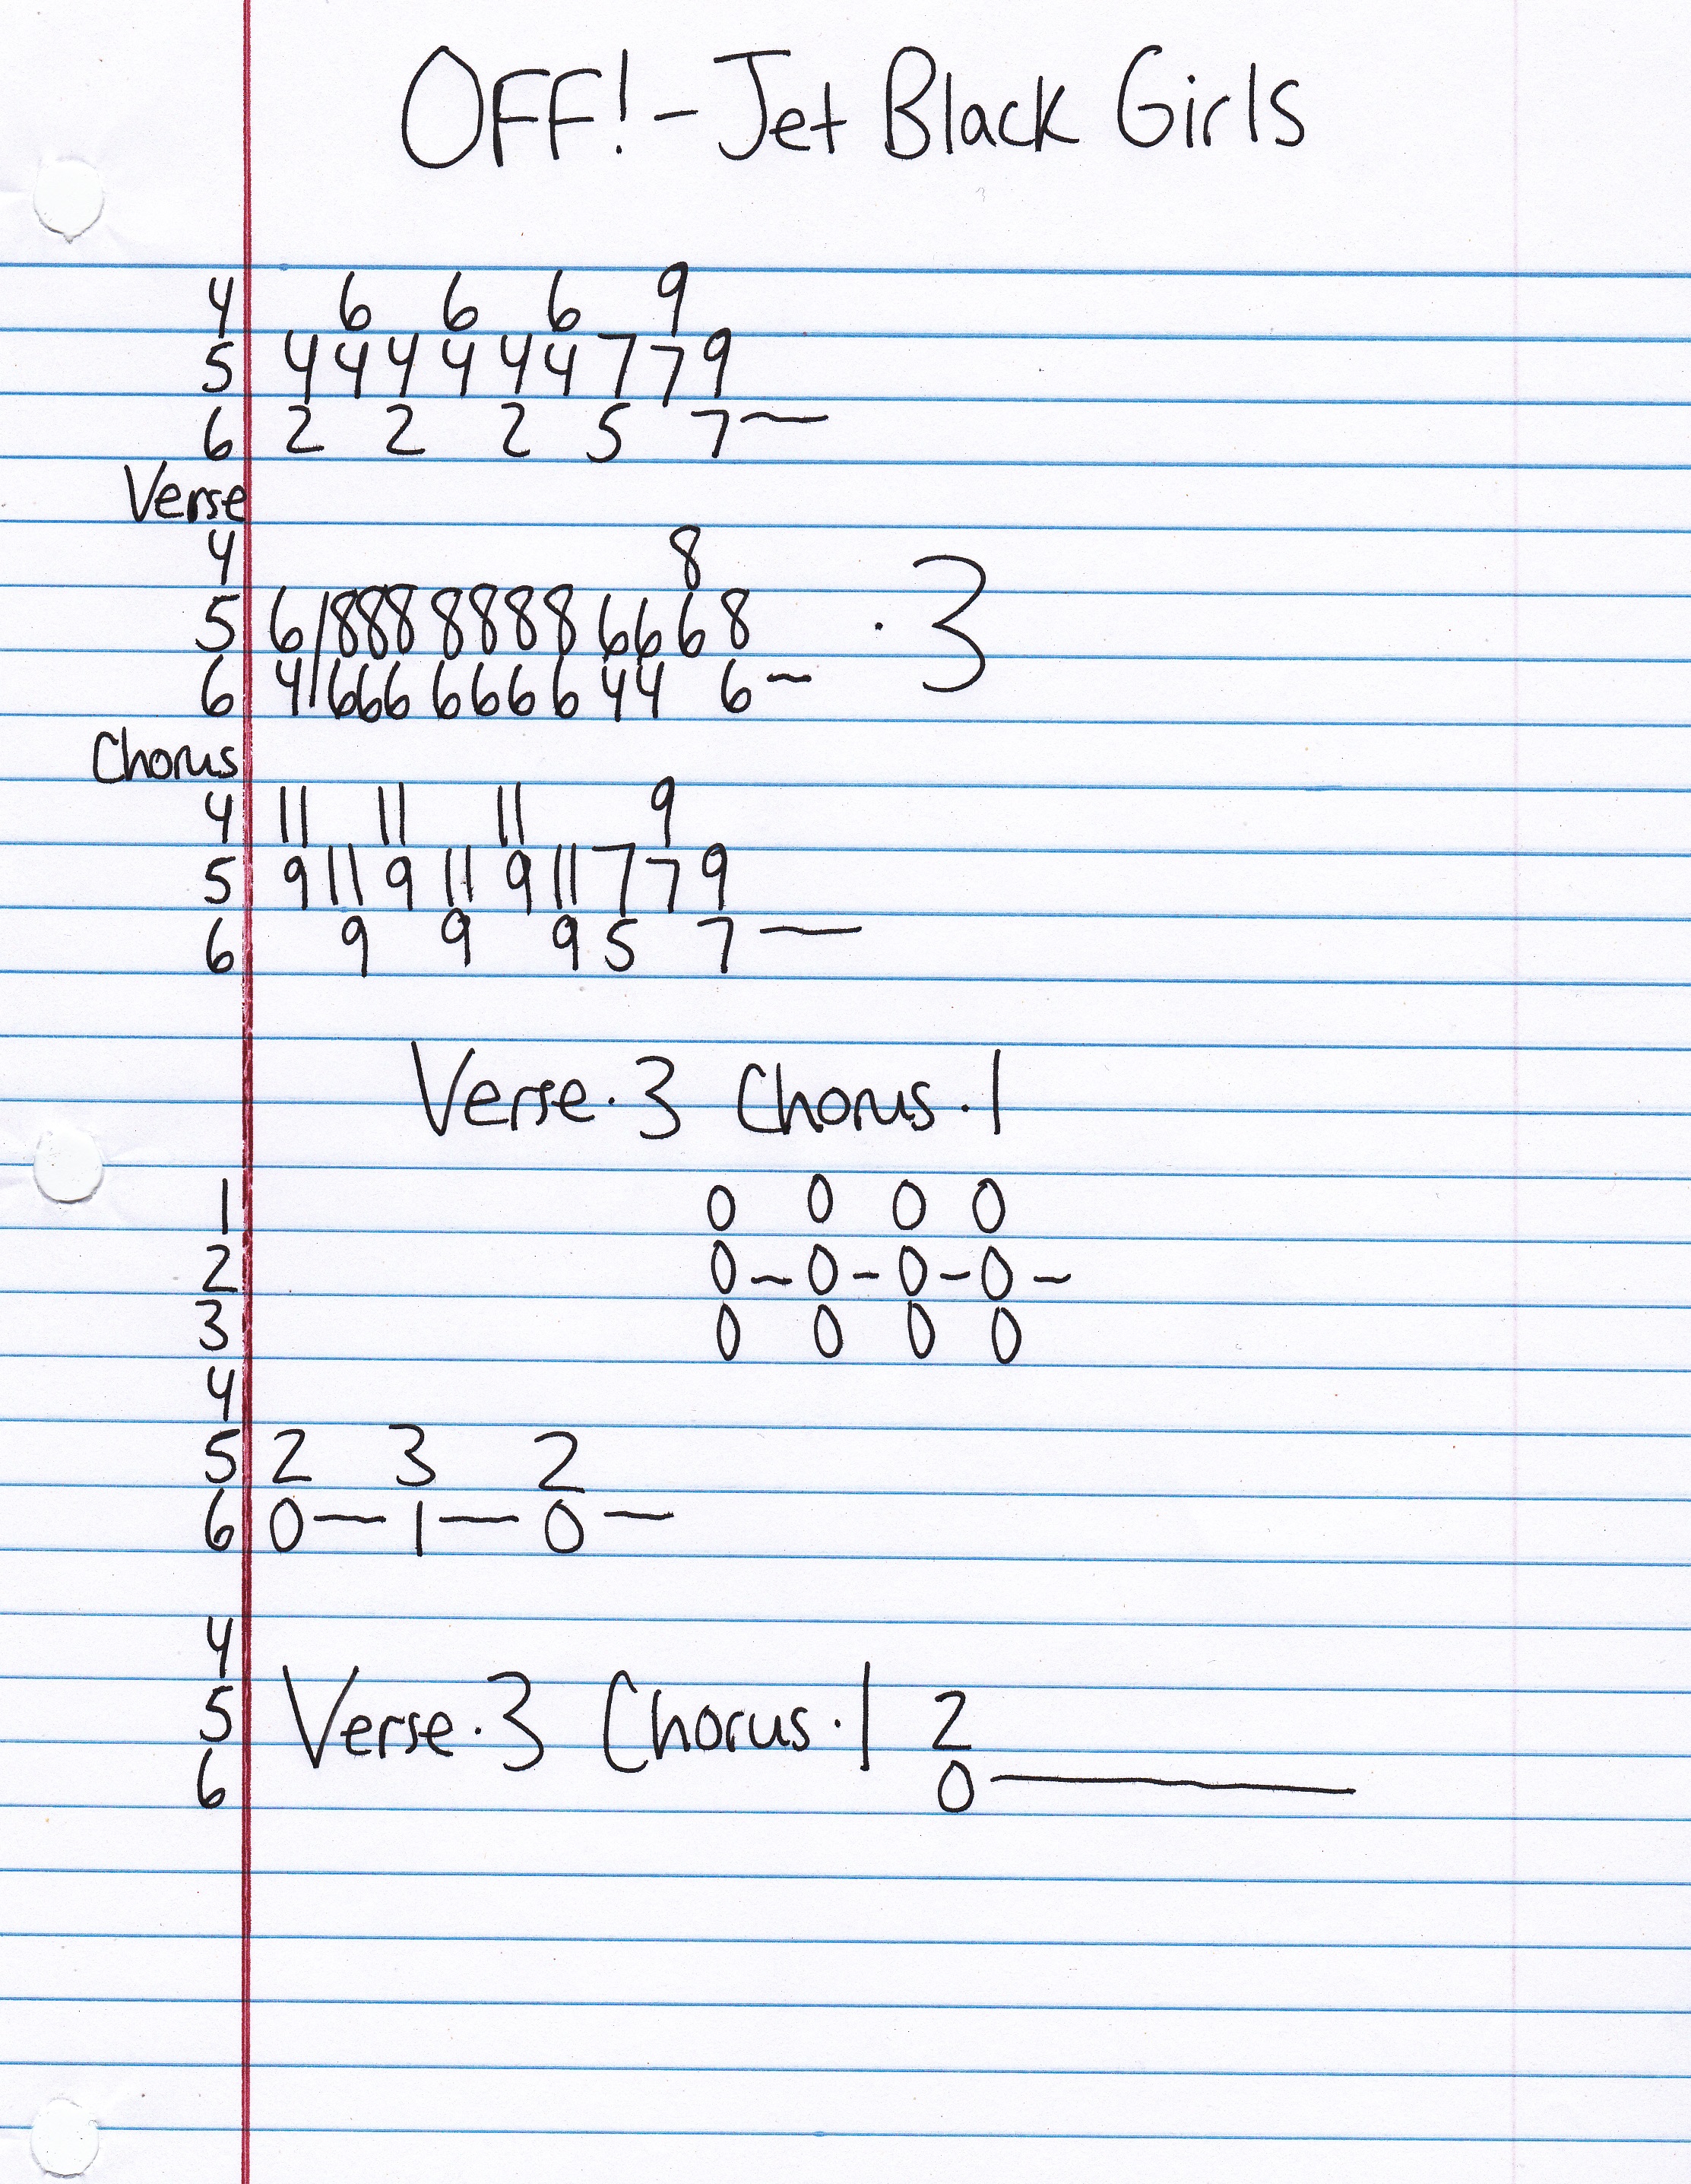 OFF! - Jet Black Girls
4 6 6 6 9
5 4 4 4 4 4 4 7 7 9
6 2 2 2 5 7 —
Verse
4 8
5 6/888 8888 6668 · 3
6 4/666 6666 44 6 ~
Chorus
4 11 11 11 9
5 9 11 9 11 9 11 7 7 9
6 9 9 9 5 7 —
Verse · 3 Chorus · 1
1 0 0 0 0
2 0 - 0 - 0 - 0 -
3 0 0 0 0
4
5 2 3 2
6 0 — 1 — 0 —
4
5 Verse · 3 Chorus · 1 2
6 0 —